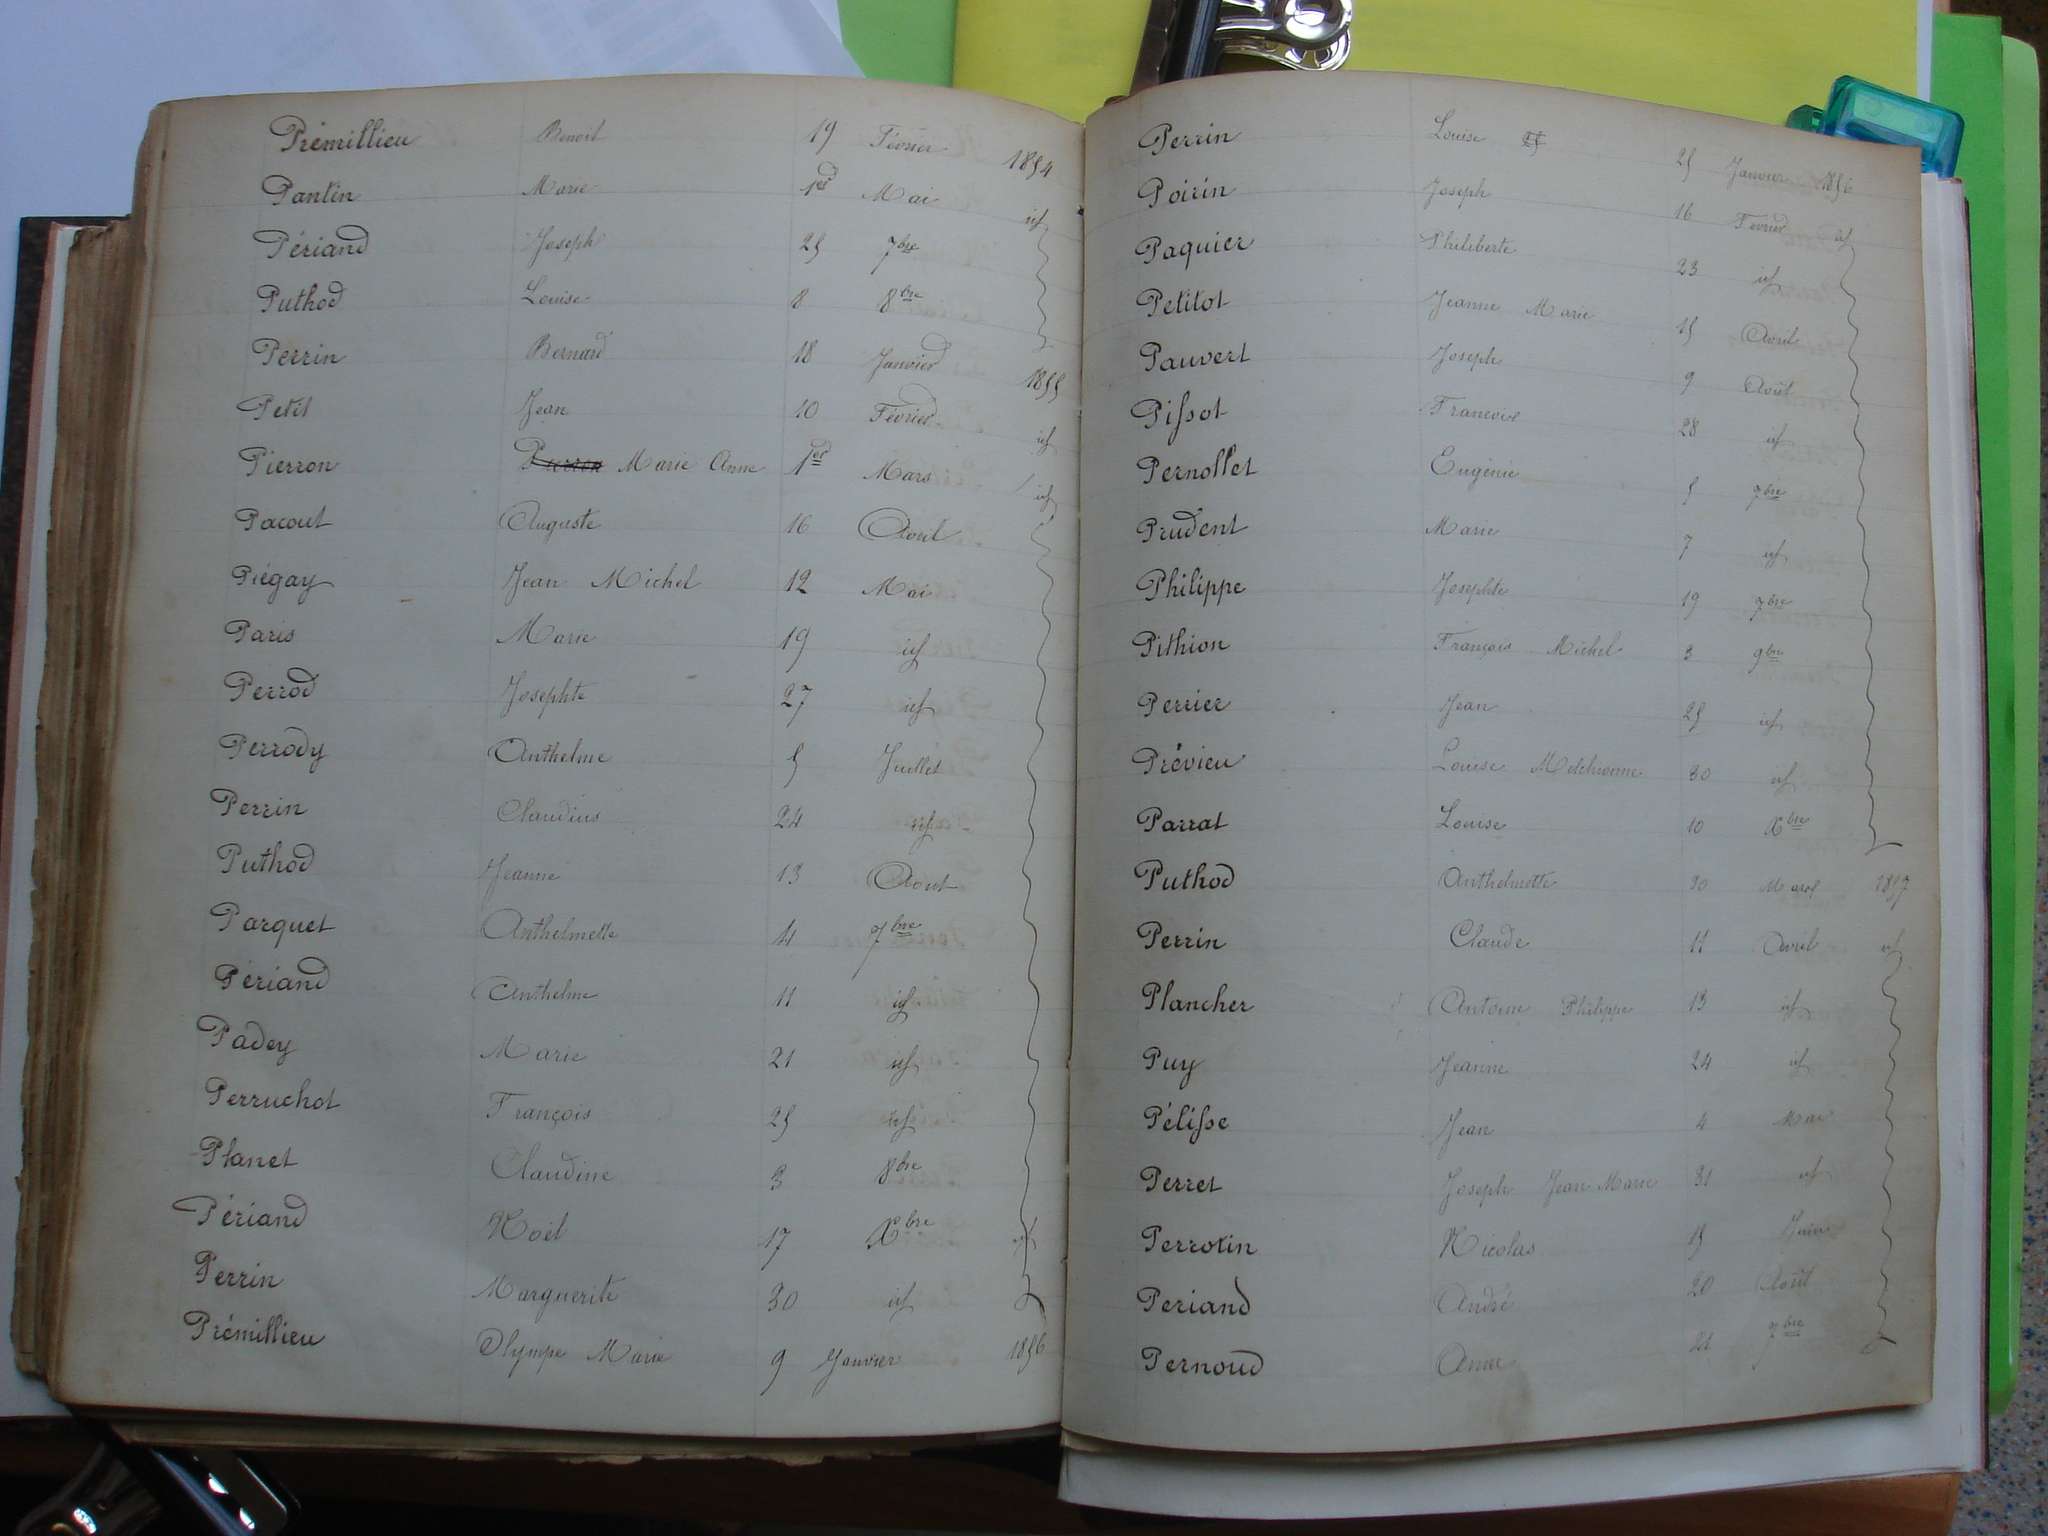 Prémillieu Benoit 19 Février 1854
Pantin Marie 1er Mai id
Périand Joseph 25 7bre
Puthod Louise 8 8bre
Perrin Bernard 18 Janvier 1855
Petit Jean 10 Février id
Pierron Pierron Marie Anne 1er Mars id
Pacout Auguste 16 Avril
Piégay Jean Michel 12 Mai
Paris Marie 19 id
Perrod Josephte 27 id
Perrody Anthelme 5 Juillet
Perrin Claudius 24 id
Puthod Jeanne 13 Aout
Parquet Anthelmette 4 7bre
Périand Anthelme 11 id
Padey Marie 21 id
Perruchot François 25 id
Planet Claudine 3 8bre
Périand Noël 17 Xbre id
Perrin Marguerite 30 id
Prémillieu Olympe Marie 9 Janvier 1856
Perrin Louise 25 Janvier 1856
Poirin Joseph 16 Février id
Paquier Philiberte 23 id
Petitot Jeanne Marie 15 Avril
Pauvert Joseph 9 Août
Pissot Francoise 28 id
Pernollet Eugénie 5 7bre
Prudent Marie 7 id
Philippe Josephte 19 7bre
Pithion François Michel 3 9bre
Perrier Jean 25 id
Prévieu Louise Melchionne 30 id
Parrat Louise 10 Xbre
Puthod Anthelmette 30 Mars 1857
Perrin Claude 11 Avril id
Plancher Antoine Philippe 13 id
Puy Jeanne 24 id
Pélisse Jean 4 Mai
Perret Joseph Jean Marie 31 id
Perrotin Nicolas 15 Juin
Periand André 20 Août
Pernoud Anne 21 7bre